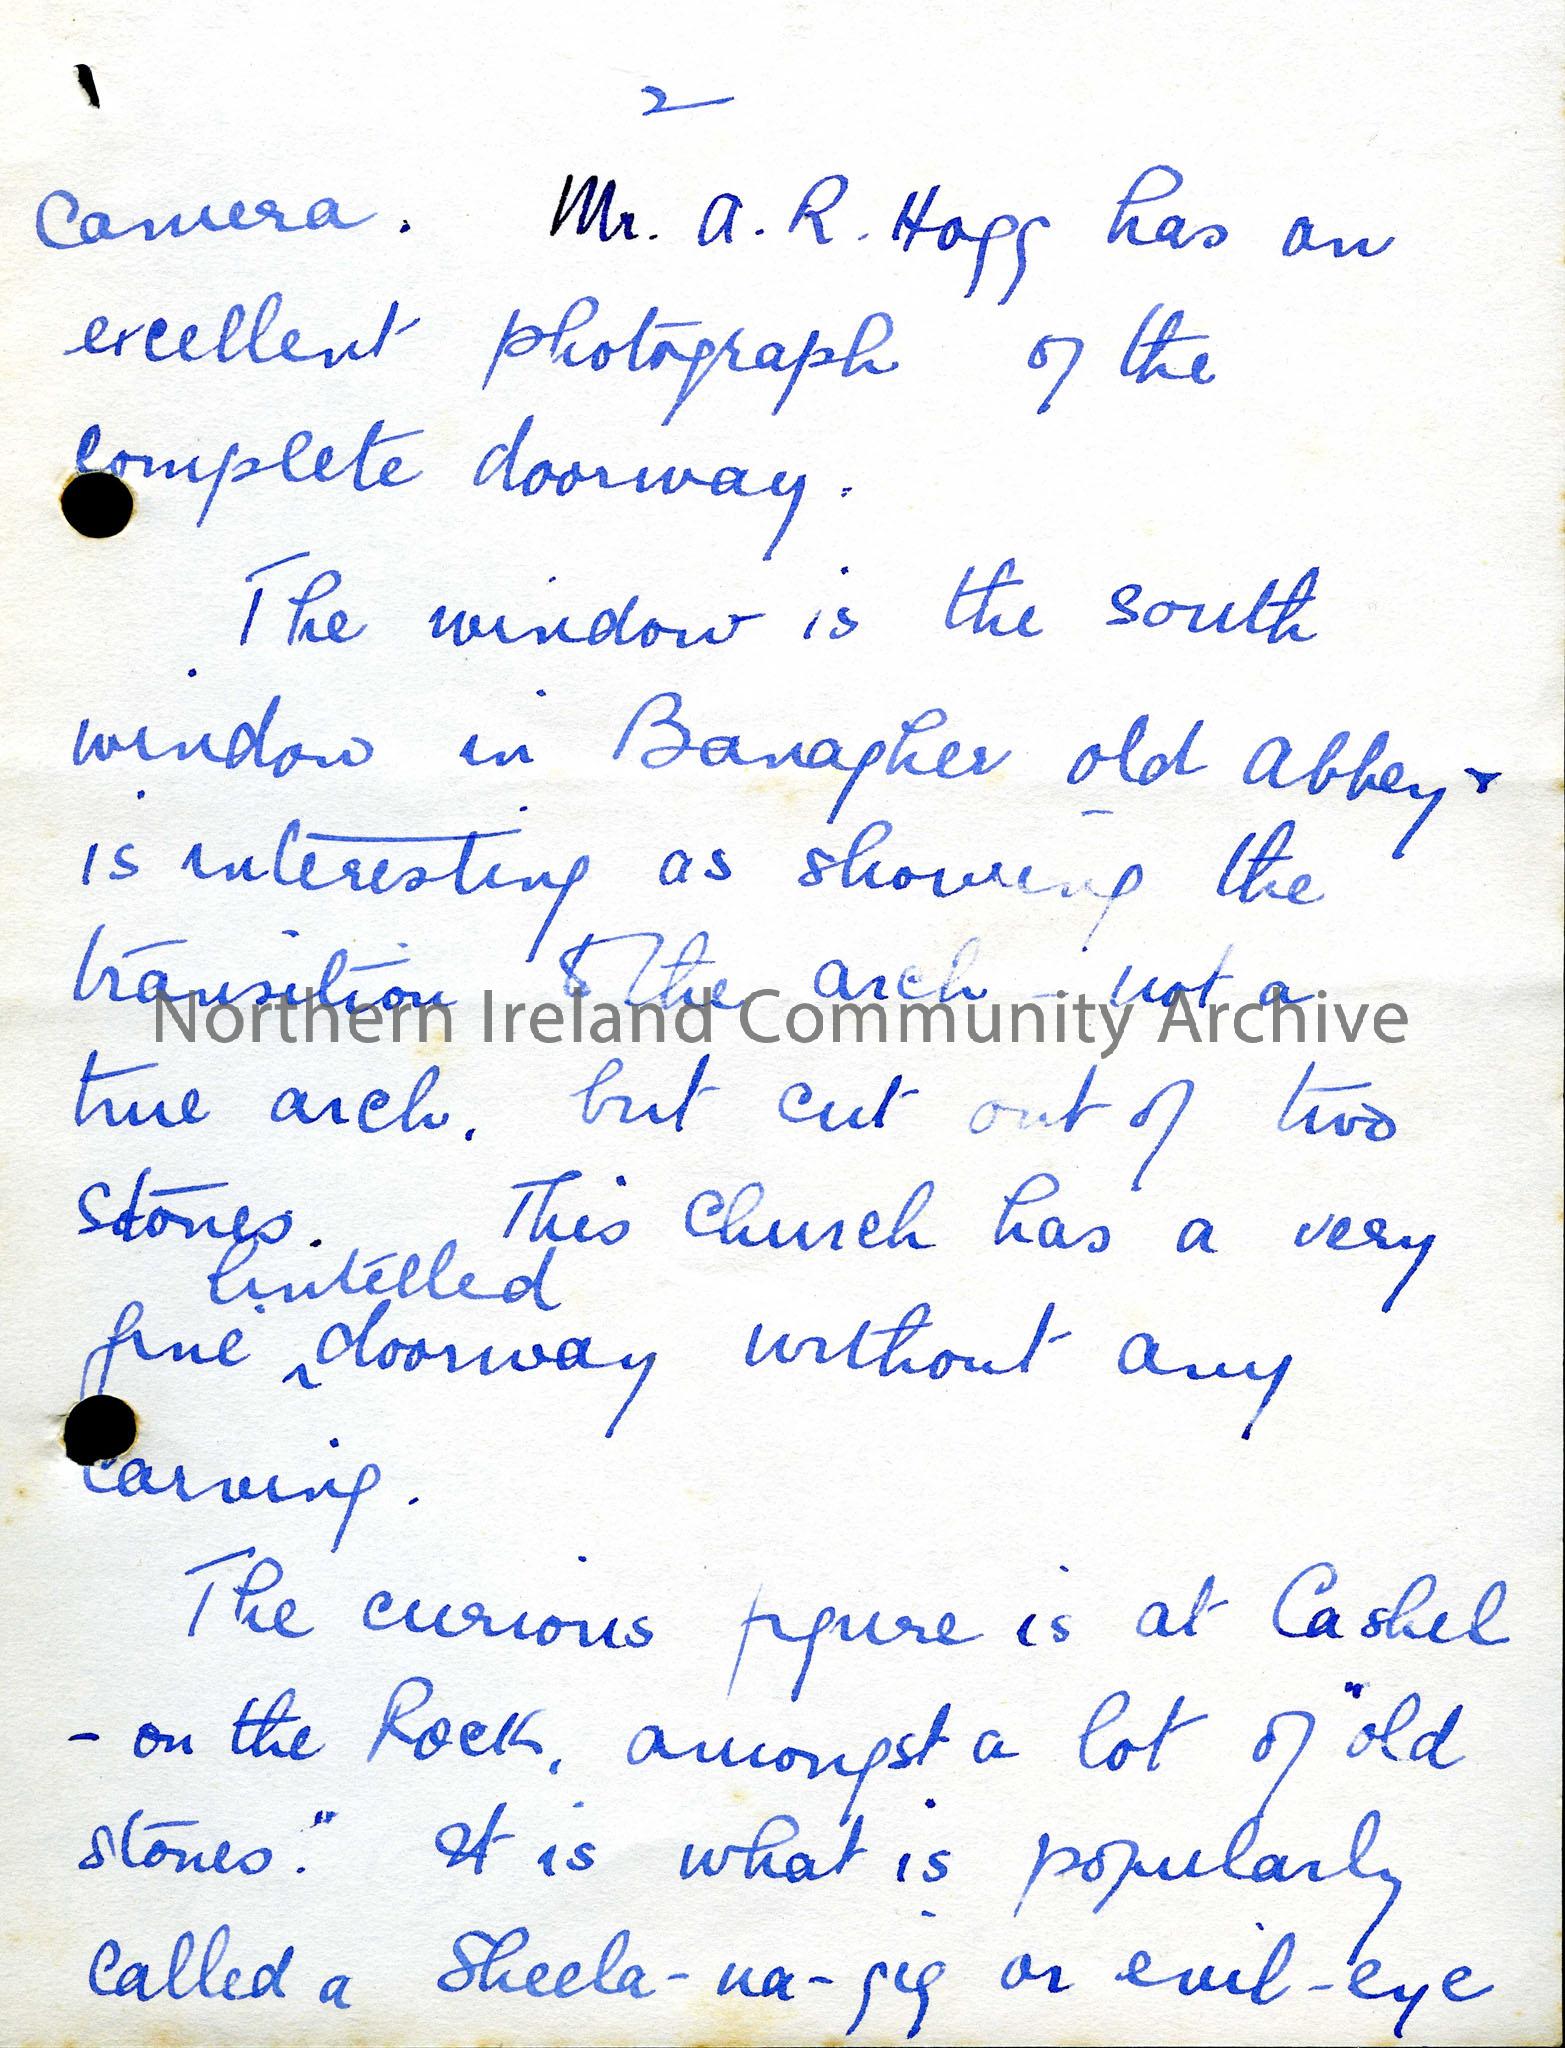 2
Camera. Mr. A. R. Hogg has an
excellent photograph of the
complete doorway.
The window is the south
window in Banagher old Abbey &
is interesting as showing the
transition to the arch - not a
Northern Ireland Community Archive
true arch, but cut out of two
stones. This Church has a very
lintelled
fine ‸ doorway without any
carving.
The curious figure is at Cashel
- on the Rock, amongst a lot of "old
stones." It is what is popularly
called a Sheela-na-gig or evil-eye